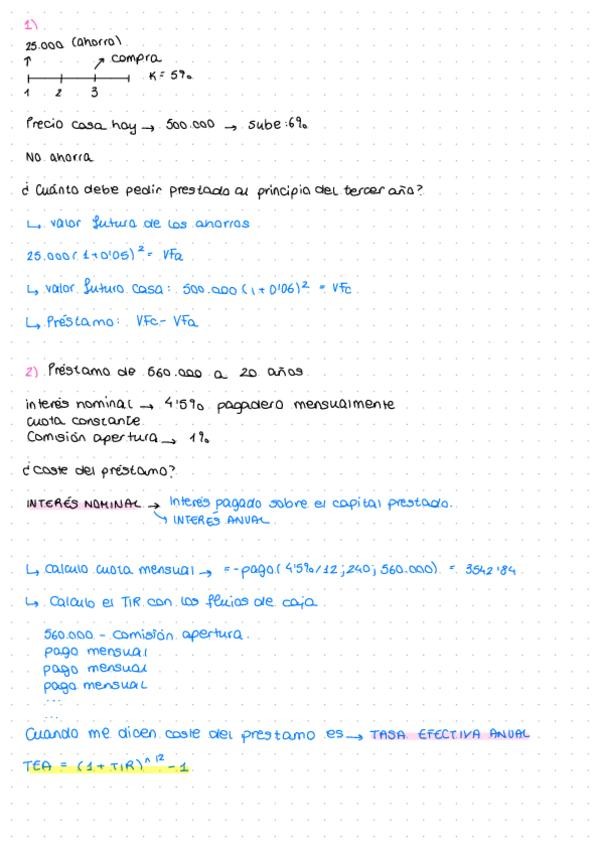 1)
25.000 (ahorro)
compra
K = 5%
1 2 3
Precio casa hoy → 500.000 → sube: 6%
No ahorra
¿Cuánto debe pedir prestado al principio del tercer año?
↳ valor futuro de los ahorros
25.000(1+0'05)² = VFa
↳ valor futuro casa: 500.000 (1+0'06)² = VFc
↳ Préstamo: VFc - VFa
2) Préstamo de 560.000 a 20 años
interés nominal → 4'5% pagadero mensualmente
cuota constante
Comisión apertura → 1%
¿Coste del préstamo?
INTERÉS NOMINAL → Interés pagado sobre el capital prestado.
↳ INTERÉS ANUAL
↳ Calculo cuota mensual → = -pago(4'5%/12; 240; 560.000) = 3542'84
↳ Calculo el TIR con los flujos de caja
560.000 - comisión apertura.
pago mensual
pago mensual
pago mensual
...
...
Cuando me dicen coste del prestamo es → TASA EFECTIVA ANUAL
TEA = (1 + TIR)^12 - 1